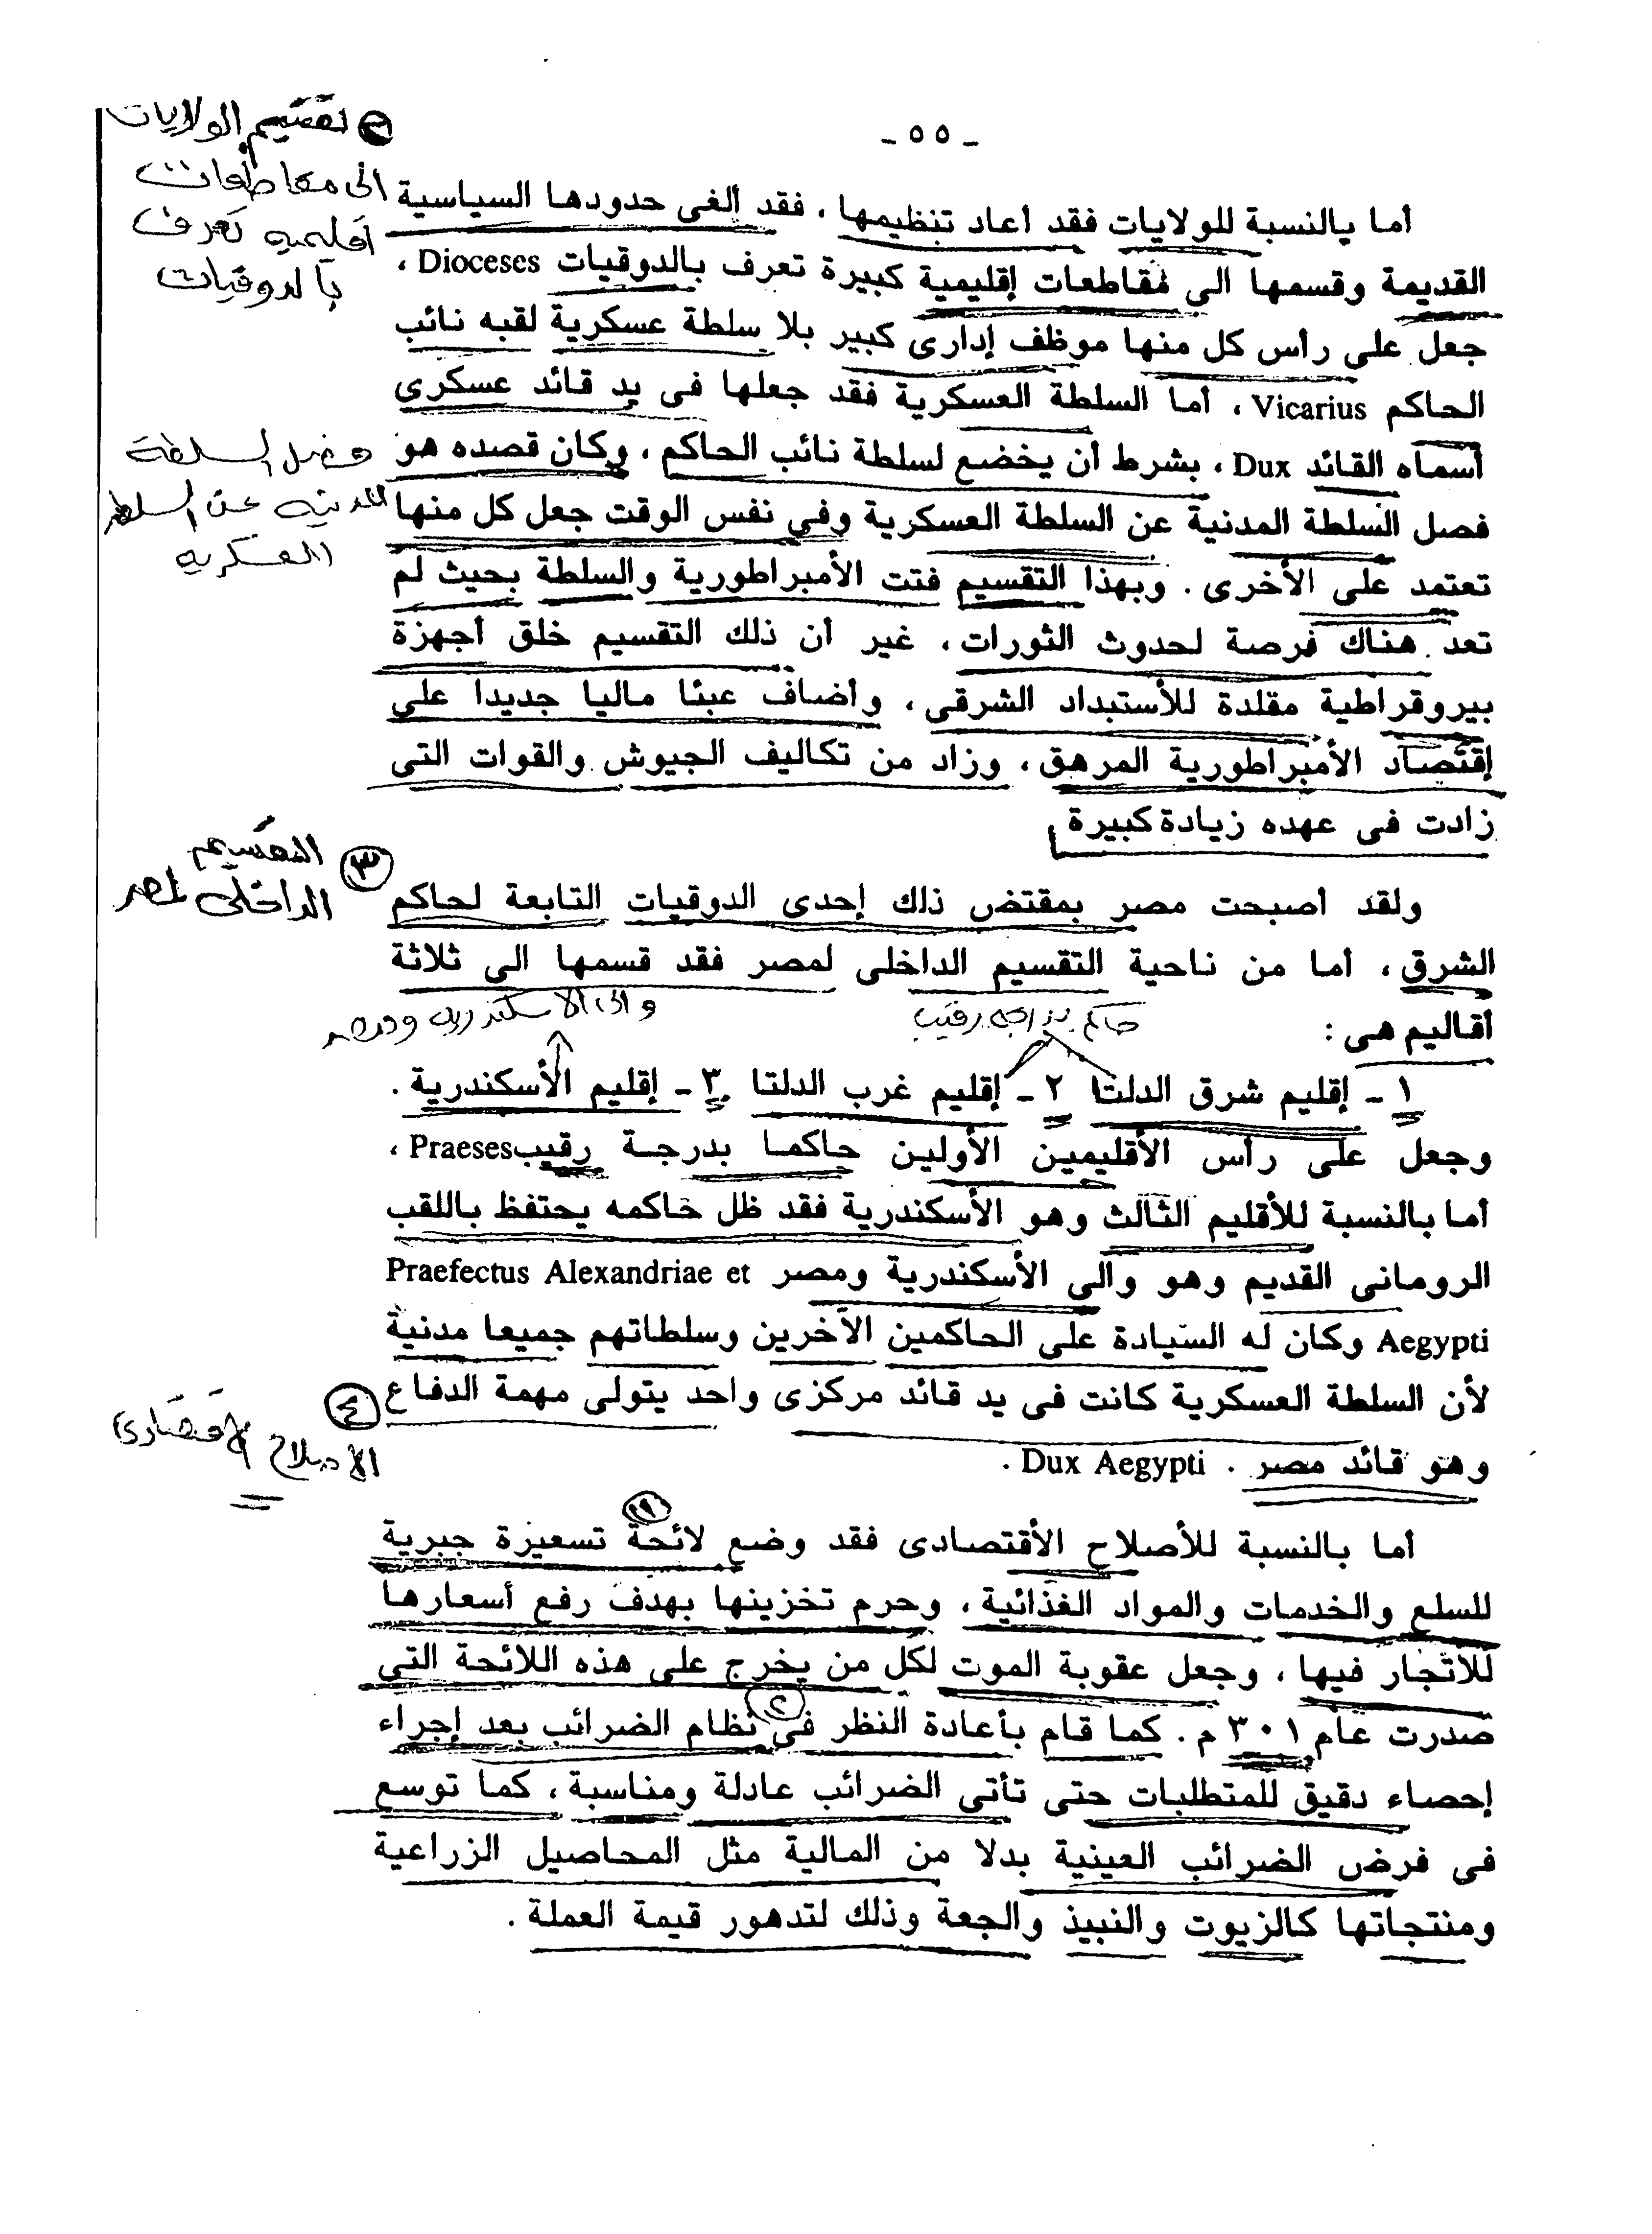 ـ ٥٥ ـ
٢ تقسيم الولايات
الى مقاطعات
اقليميه تعرف
بالدوقيات
أما بالنسبة للولايات فقد أعاد تنظيمها ، فقد ألغى حدودها السياسية
القديمة وقسمها الى مقاطعات إقليمية كبيرة تعرف بالدوقيات Dioceses ،
جعل على رأس كل منها موظف إدارى كبير بلا سلطة عسكرية لقبه نائب
الحاكم Vicarius ، أما السلطة العسكرية فقد جعلها فى يد قائد عسكرى
أسماه القائد Dux ، بشرط أن يخضع لسلطة نائب الحاكم ، وكان قصده هو
فصل السلطة المدنية عن السلطة العسكرية وفي نفس الوقت جعل كل منها
تعتمد على الأخرى . وبهذا التقسيم فتت الأمبراطورية والسلطة بحيث لم
تعد هناك فرصة لحدوث الثورات ، غير أن ذلك التقسيم خلق أجهزة
بيروقراطية مقلدة للأستبداد الشرقى ، وأضاف عبئا ماليا جديدا على
إقتصاد الأمبراطورية المرهق ، وزاد من تكاليف الجيوش والقوات التى
زادت فى عهده زيادة كبيرة .
فصل السلطة
المدنيه عن السلطه
العسكريه
٣ التقسيم
الداخلى لمصر
ولقد أصبحت مصر بمقتض ذلك إحدى الدوقيات التابعة لحاكم
الشرق ، أما من ناحية التقسيم الداخلى لمصر فقد قسمها الى ثلاثة
أقاليم هى :
حاكم بدرجه رقيب
والى الاسكندريه ومصر
١ ـ إقليم شرق الدلتا ٢ ـ إقليم غرب الدلتا ٣ ـ إقليم الأسكندرية .
وجعل على رأس الأقليمين الأولين حاكما بدرجة رقيب Praeses ،
أما بالنسبة للأقليم الثالث وهو الأسكندرية فقد ظل حاكمه يحتفظ باللقب
الرومانى القديم وهو والى الأسكندرية ومصر Praefectus Alexandriae et
Aegypti وكان له السيادة على الحاكمين الآخرين وسلطاتهم جميعا مدنية
لأن السلطة العسكرية كانت فى يد قائد مركزى واحد يتولى مهمة الدفاع
وهو قائد مصر . Dux Aegypti .
٤
الاصلاح الاقتصادى
١
أما بالنسبة للأصلاح الأقتصادى فقد وضع لائحة تسعيرة جبرية
للسلع والخدمات والمواد الغذائية ، وحرم تخزينها بهدف رفع أسعارها
للاتجار فيها ، وجعل عقوبة الموت لكل من يخرج على هذه اللائحة التى
٢
صدرت عام ٣٠١ م . كما قام بأعادة النظر فى نظام الضرائب بعد إجراء
إحصاء دقيق للمتطلبات حتى تأتى الضرائب عادلة ومناسبة ، كما توسع
فى فرض الضرائب العينية بدلا من المالية مثل المحاصيل الزراعية
ومنتجاتها كالزيوت والنبيذ والجعة وذلك لتدهور قيمة العملة .